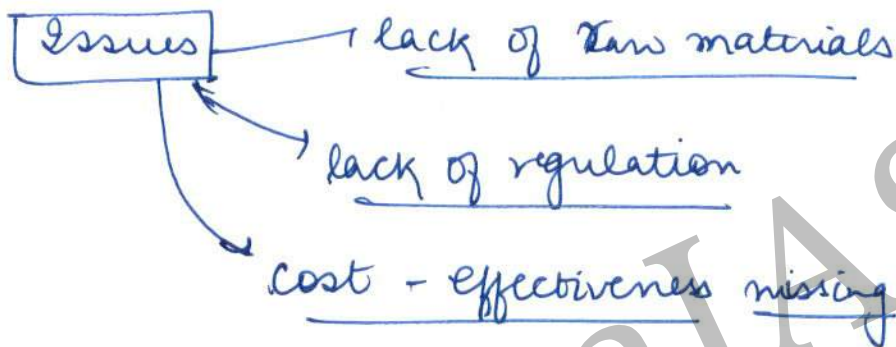 Issues lack of raw materials
lack of regulation
cost - effectiveness missing